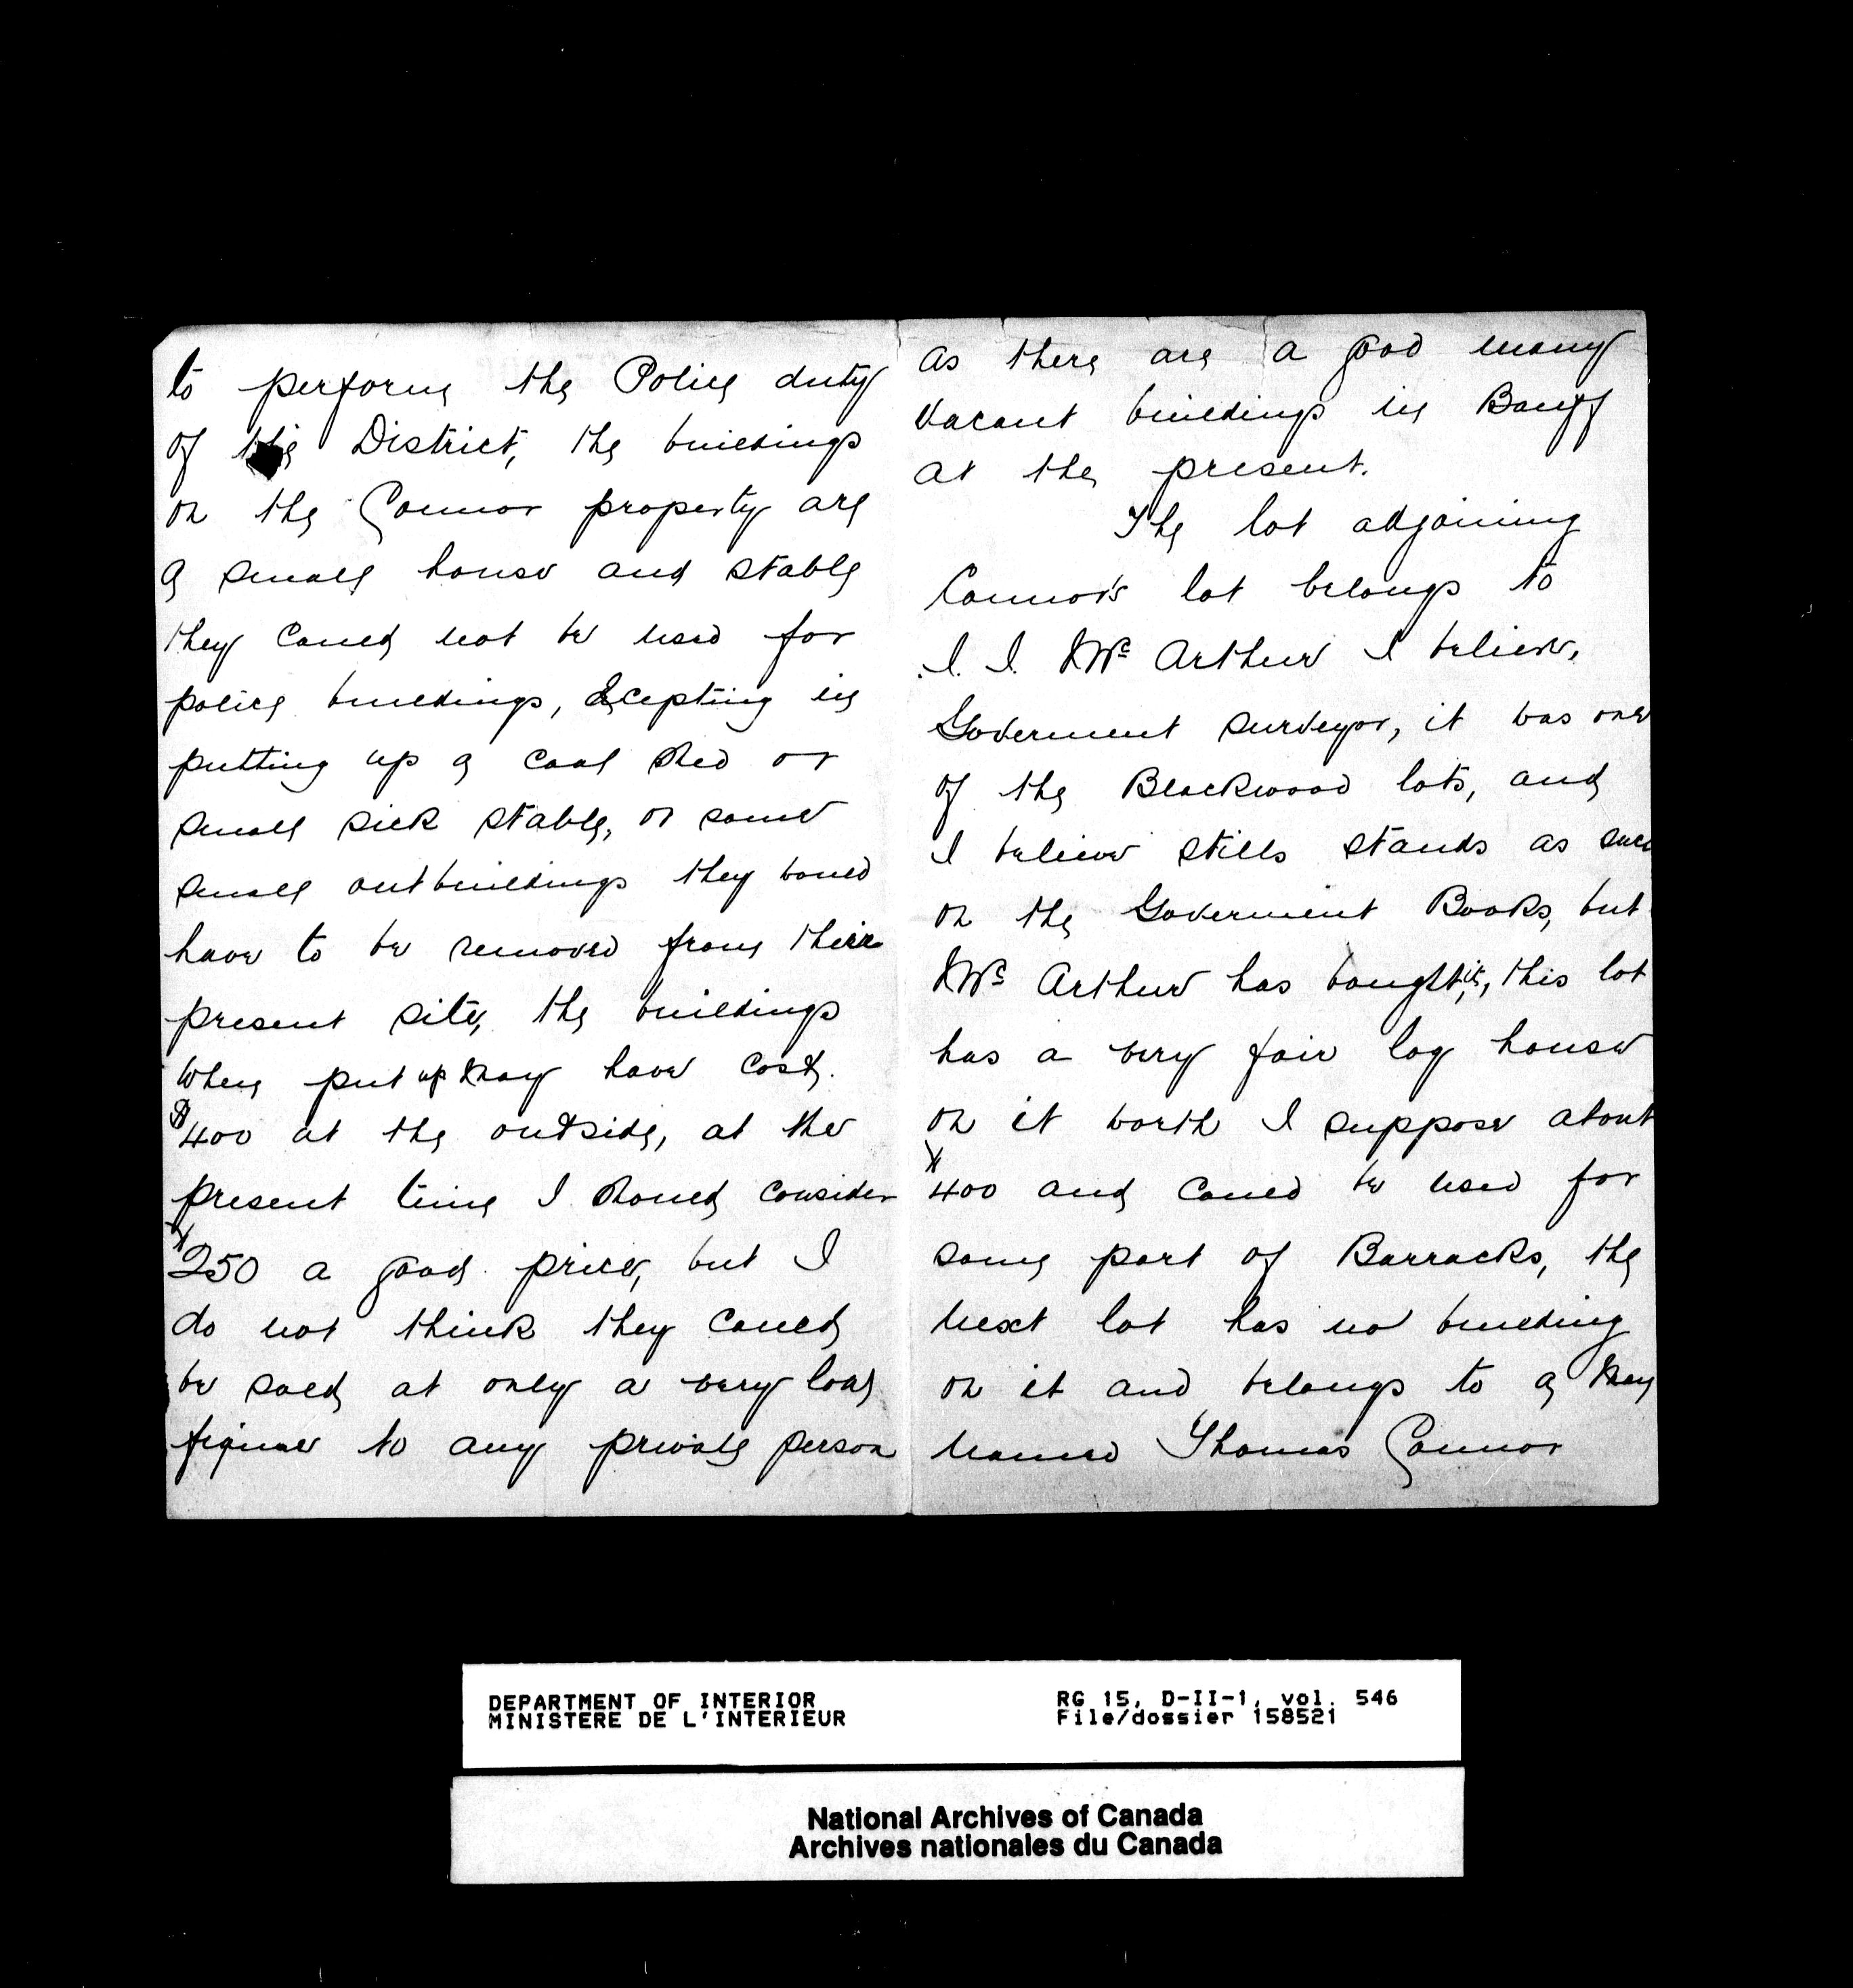 to perform the Police duty
of the District, the buildings
on the Connor property are
a small house and stable
they could not be used for
police buildings, excepting in
putting up a coal shed or
small sick stable, or some
small outbuildings they would
have to be removed from their
present site, the buildings
when put up may have cost.
$400 at the outside, at the
present time I should consider
$250 a good price, but I
do not think they could
be sold at only a very low
figure to any private person
as there are a good many
vacant buildings in Banff
at the present.
The lot adjoining
Connor's lot belongs to
J. J. McArthur I believe,
Goverment surveyor, it was one
of the Blackwood lots, and
I believe stills stands as such
on the Goverment Books, but
McArthur has bought it, this lot
has a very fair log house
on it worth I suppose about
$400 and could be used for
some part of Barracks, the
next lot has no building
on it and belongs to a man
named Thomas Connor
DEPARTMENT OF INTERIOR
MINISTERE DE L'INTERIEUR
RG 15, D-II-1, vol. 546
File/dossier 158521
National Archives of Canada
Archives nationales du Canada